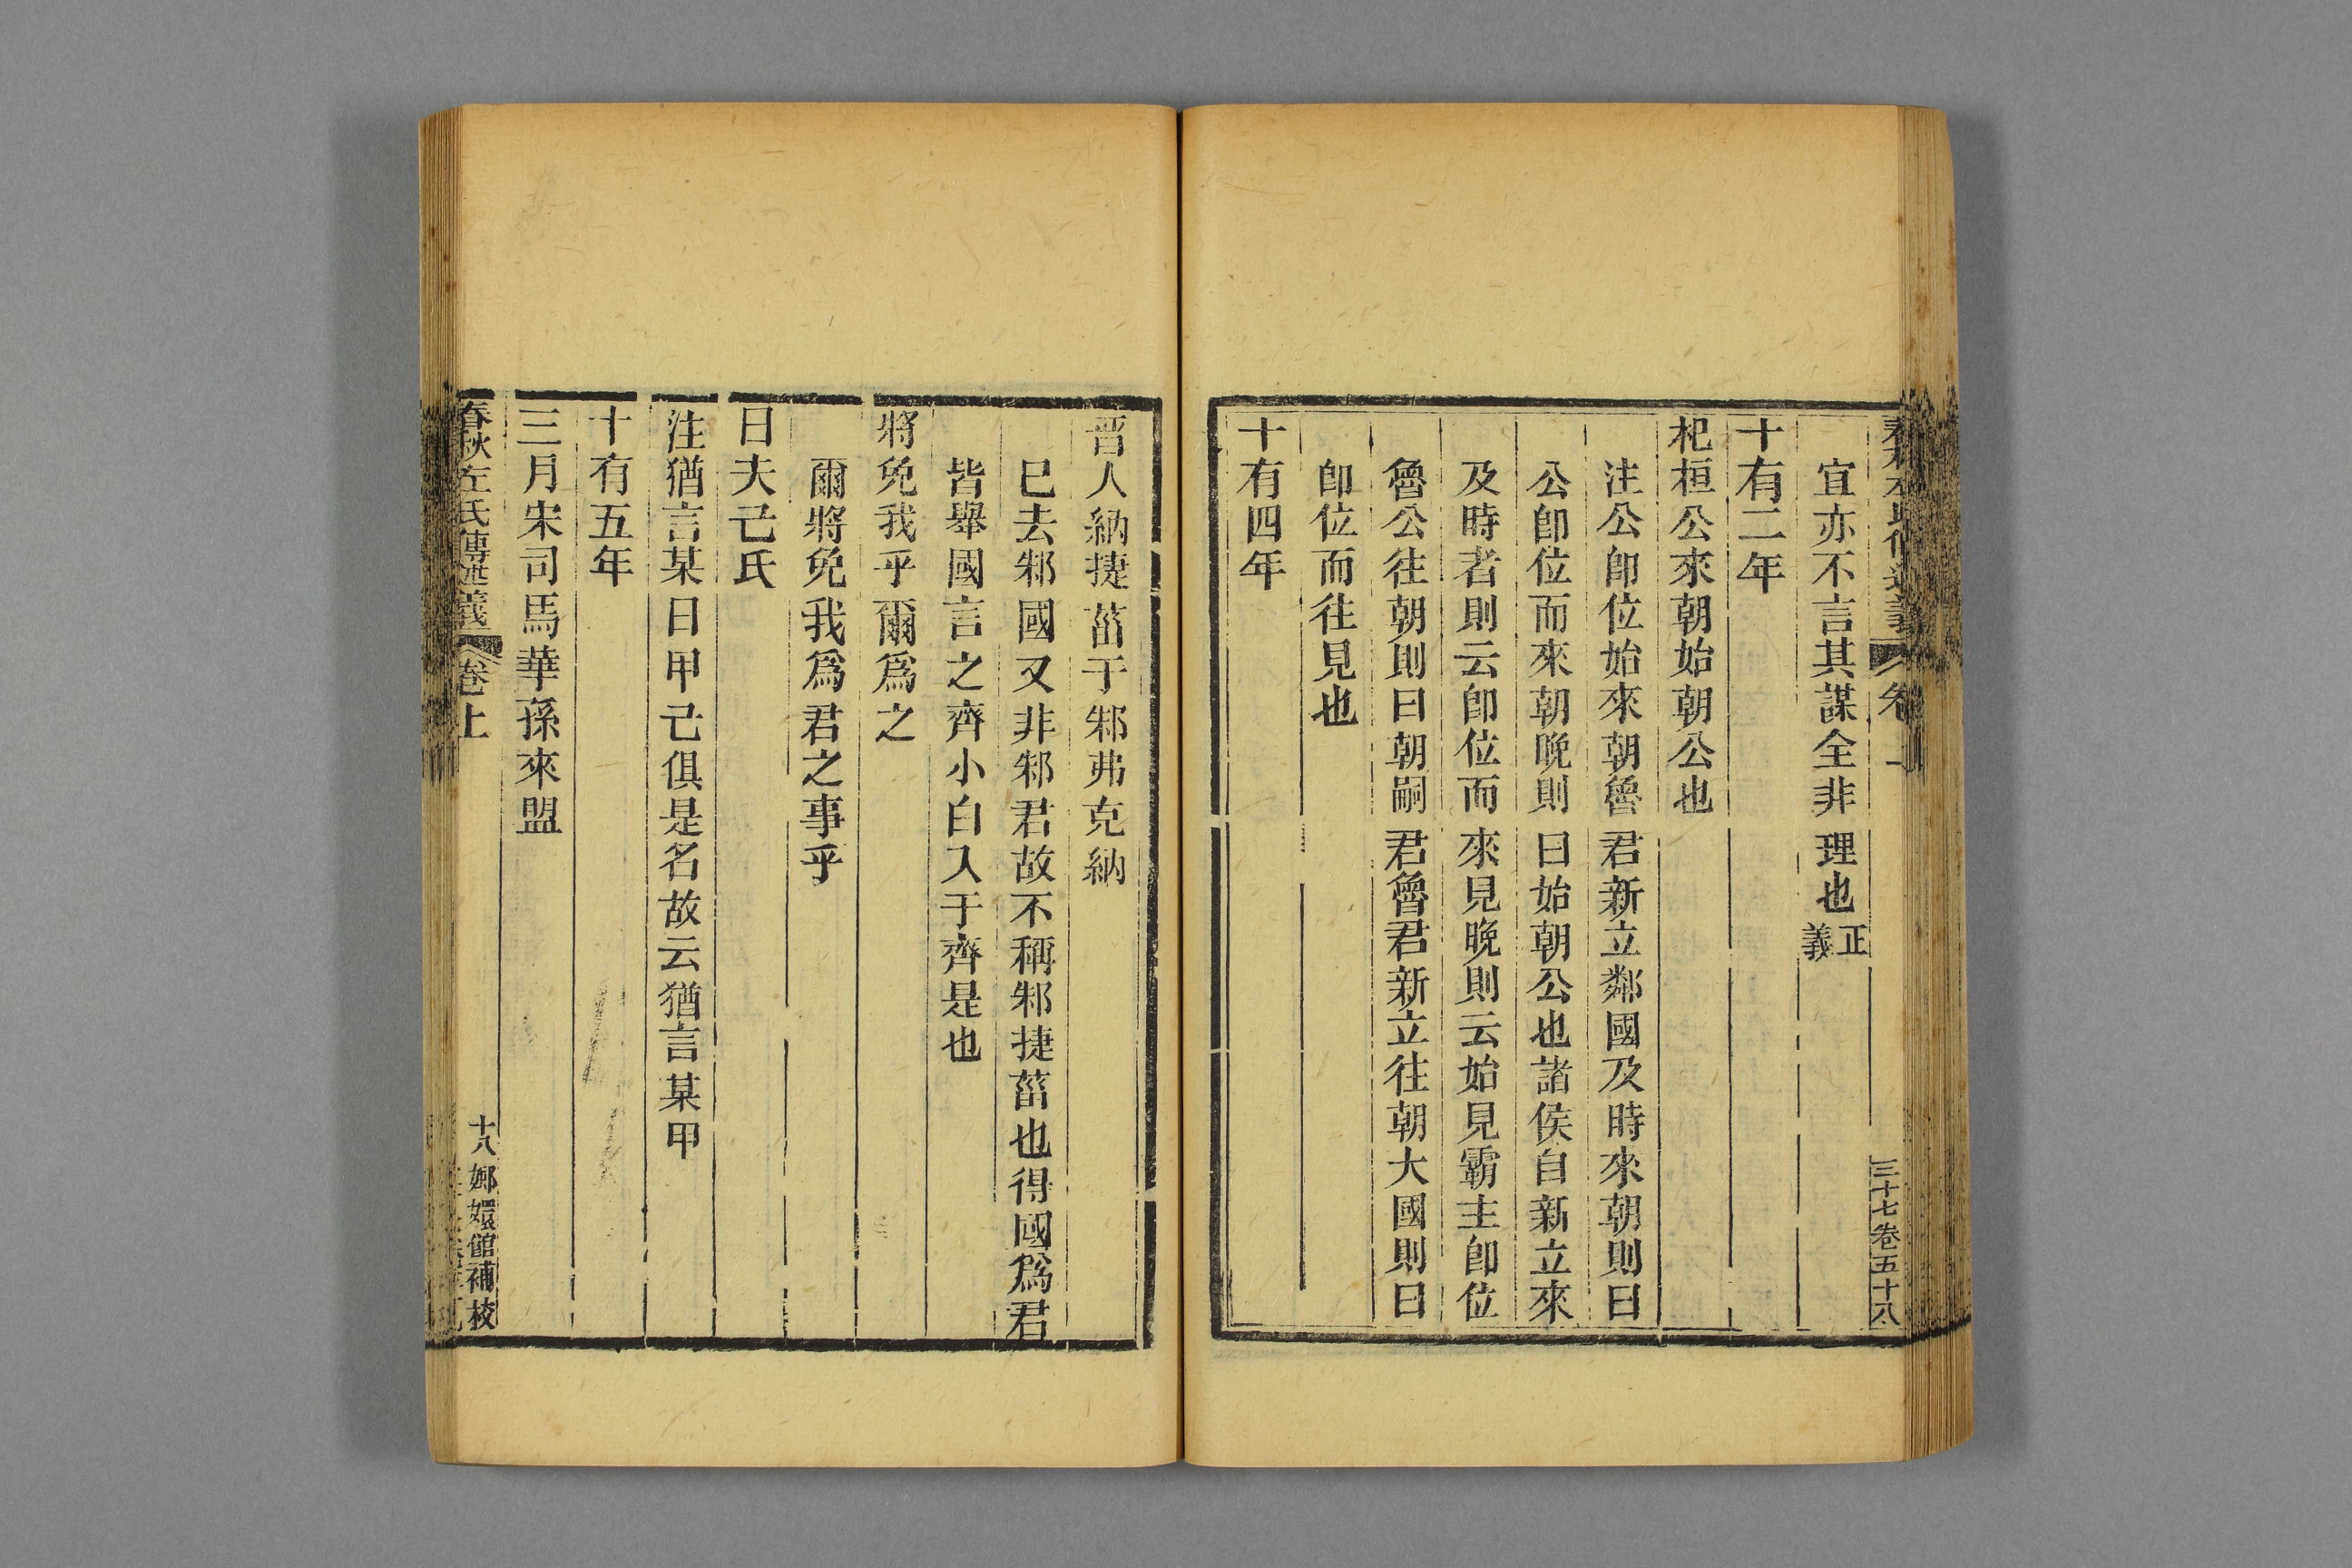 三十七卷五十八
宜亦不言其謀全非理也正義
十有二年
杞桓公來朝始朝公也
注公卽位始來朝魯君新立鄰國及時來朝則曰
公卽位而來朝晚則曰始朝公也諸侯自新立來
及時者則云卽位而來見晚則云始見霸主卽位
魯公往朝則曰朝嗣君魯君新立往朝大國則曰
卽位而往見也
十有四年
晉人納捷菑于邾弗克納
已去邾國又非邾君故不稱邾捷菑也得國爲君
皆舉國言之齊小白入于齊是也
將免我乎爾爲之
爾將免我爲君之事乎
曰夫己氏
注猶言某曰甲己俱是名故云猶言某甲
十有五年
三月宋司馬華孫來盟
春秋左氏傳述義 卷上 十八 嫏嬛館補校